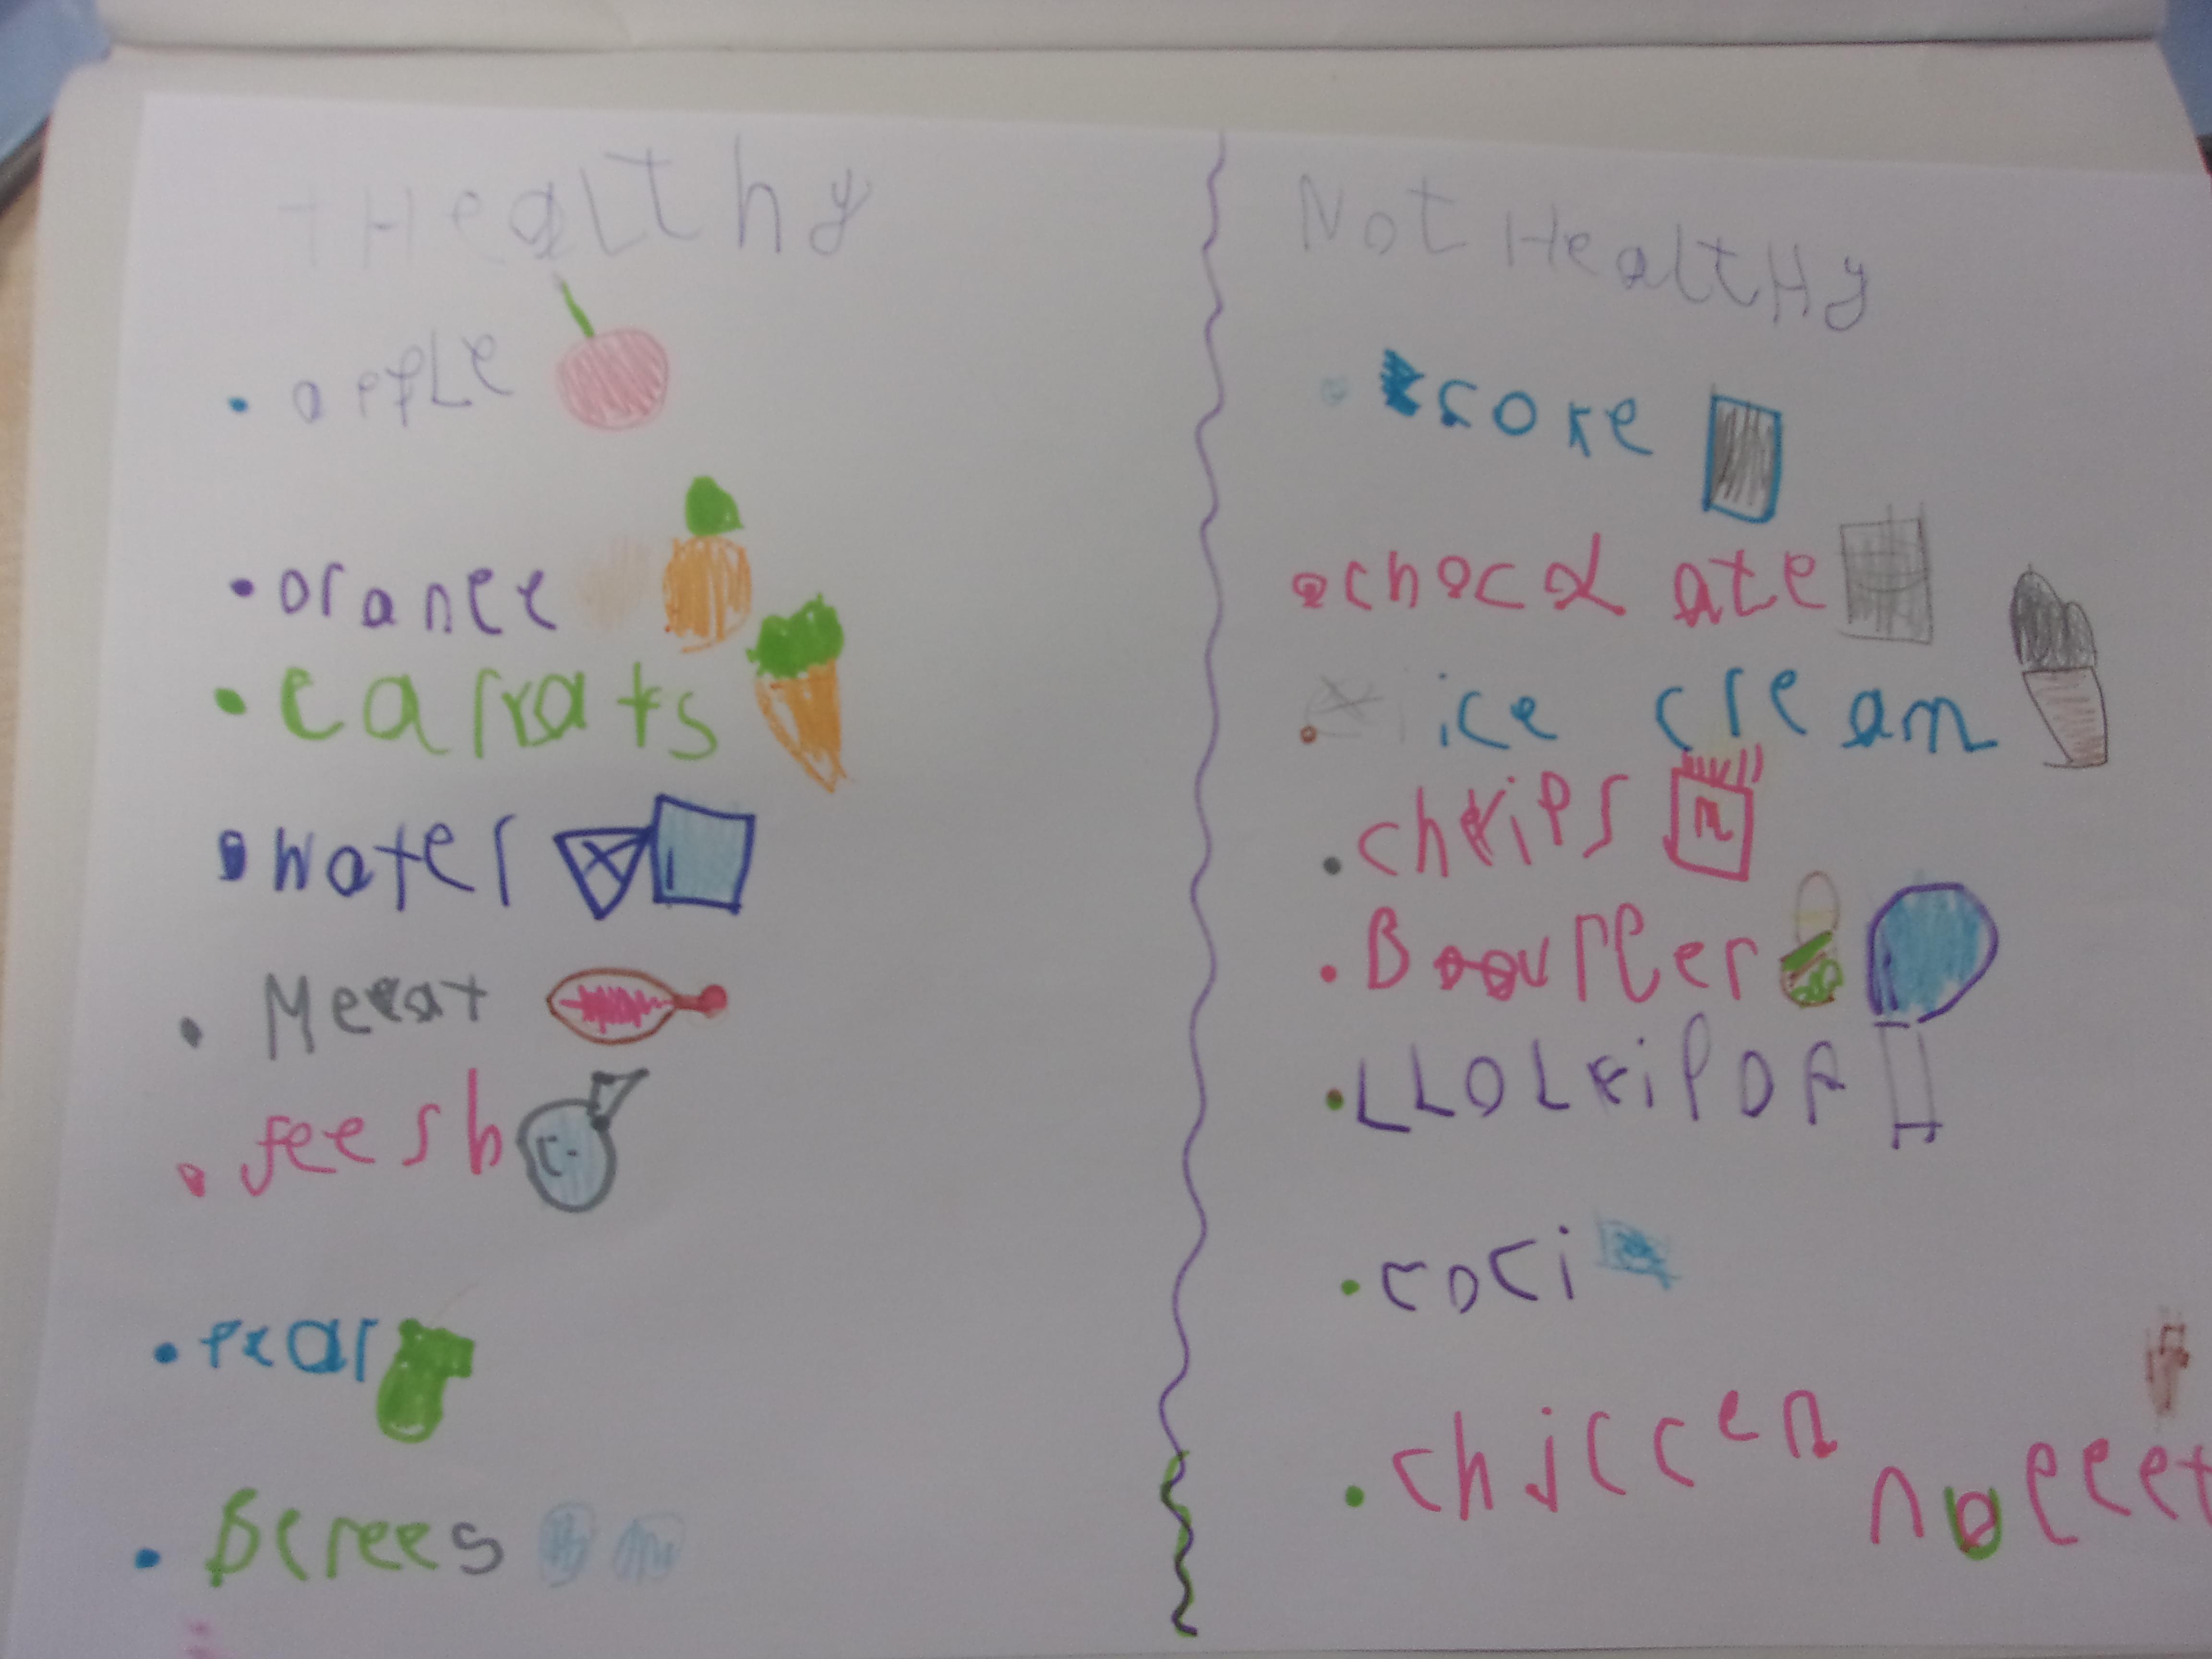 Healthy
• apple
• orange
• carrats
• water
• Meeat
• feesh
• pear
• Berees
Not Healthy
• coke
• chocolate
• ice cream
• chips
• Bourger
• LLOLiPOP
• coci
• chiccen nogeet